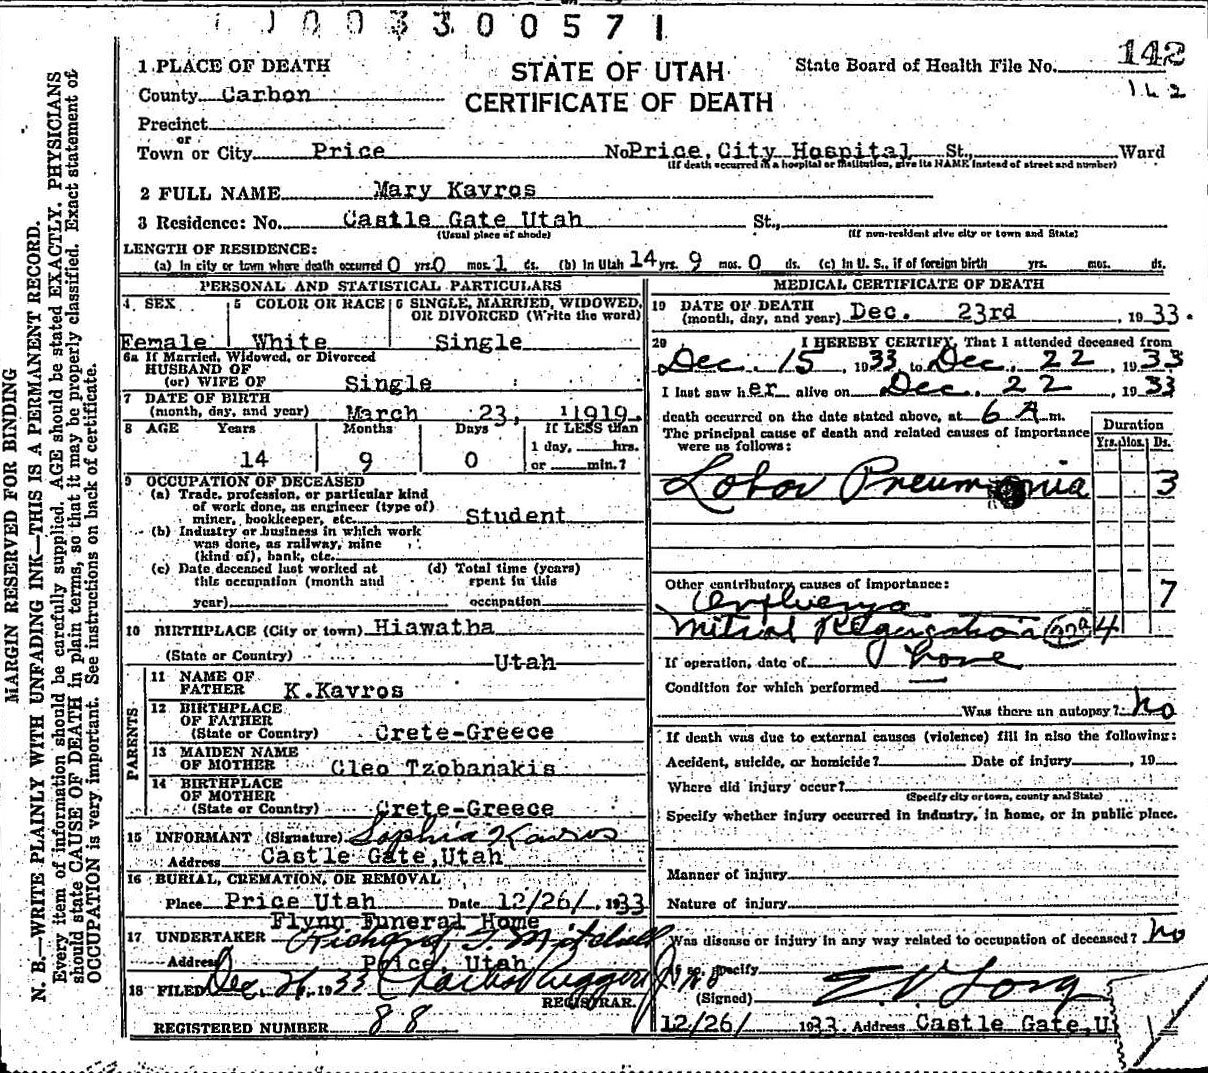 003300571
1 PLACE OF DEATH
STATE OF UTAH
CERTIFICATE OF DEATH
State Board of Health File No. 142
142
County Carbon
Precinct
or
Town or City Price No. Price City Hospital St., Ward
(If death occurred in a hospital or institution, give its NAME instead of street and number)
2 FULL NAME Mary Kavros
3 Residence: No. Castle Gate Utah St.,
(Usual place of abode) (If non-resident give city or town and State)
LENGTH OF RESIDENCE:
(a) In city or town where death occurred 0 yrs. 0 mos. 1 ds. (b) In Utah 14 yrs. 9 mos. 0 ds. (c) In U. S., if of foreign birth yrs. mos. ds.
PERSONAL AND STATISTICAL PARTICULARS
4 SEX 5 COLOR OR RACE 6 SINGLE, MARRIED, WIDOWED, OR DIVORCED (Write the word)
Female White Single
6a If Married, Widowed, or Divorced
HUSBAND OF
(or) WIFE OF Single
7 DATE OF BIRTH
(month, day, and year) March 23, 1919.
8 AGE Years Months Days If LESS than
1 day, hrs.
or min.?
14 9 0
9 OCCUPATION OF DECEASED
(a) Trade, profession, or particular kind
of work done, as engineer (type of)
miner, bookkeeper, etc. Student
(b) Industry or business in which work
was done, as railway, mine
(kind of), bank, etc.
(c) Date deceased last worked at
this occupation (month and
year)
(d) Total time (years)
spent in this
occupation
10 BIRTHPLACE (City or town) Hiawatha
(State or Country) Utah
PARENTS
11 NAME OF
FATHER K.Kavros
12 BIRTHPLACE
OF FATHER
(State or Country) Crete-Greece
13 MAIDEN NAME
OF MOTHER Cleo Tzobanakis
14 BIRTHPLACE
OF MOTHER
(State or Country) Crete-Greece
15 INFORMANT (Signature) Sophia Kavros
Address Castle Gate, Utah
16 BURIAL, CREMATION, OR REMOVAL
Place Price Utah Date 12/26/ 1933
Flynn Funeral Home
17 UNDERTAKER Richard T. Mitchell
Address Price, Utah
18 FILED Dec. 26, 1933
REGISTRAR.
REGISTERED NUMBER 88
MEDICAL CERTIFICATE OF DEATH
19 DATE OF DEATH
(month, day, and year) Dec. 23rd , 1933.
20 I HEREBY CERTIFY, That I attended deceased from
Dec. 15, 1933 to Dec. 22, 1933
I last saw her alive on Dec. 22, 1933
death occurred on the date stated above, at 6 A m.
The principal cause of death and related causes of importance
were as follows:
Duration
Yrs. Mos. Ds.
Lobar Pneumonia 3
Other contributory causes of importance:
Influenza 7
Mitral Regurgitation 4
If operation, date of none
Condition for which performed
Was there an autopsy? no
If death was due to external causes (violence) fill in also the following:
Accident, suicide, or homicide? Date of injury , 19
Where did injury occur?
(Specify city or town, county and State)
Specify whether injury occurred in industry, in home, or in public place.
Manner of injury
Nature of injury
Was disease or injury in any way related to occupation of deceased? no
If so, specify no
(Signed) E V Long
12/26/ 1933 Address Castle Gate, U
MARGIN RESERVED FOR BINDING
N. B.—WRITE PLAINLY WITH UNFADING INK—THIS IS A PERMANENT RECORD.
Every item of information should be carefully supplied. AGE should be stated EXACTLY. PHYSICIANS
should state CAUSE OF DEATH in plain terms, so that it may be properly classified. Exact statement of
OCCUPATION is very important. See instructions on back of certificate.